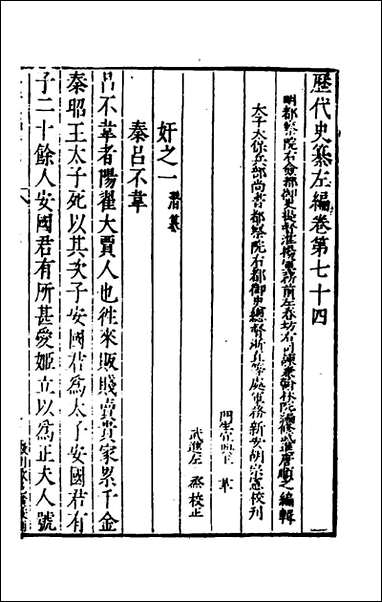 歷代史纂左編卷第七十四
明都察院右僉都御史提督淮揚軍務前左春坊右司諫兼翰林院編修武進唐順之編輯
太子太保兵部尚書都察院右都御史總督浙直等處軍務新安胡宗憲校刊
門生宜興王革
武進左烝校正
奸之一 潛纂
秦呂不韋
呂不韋者陽翟大賈人也徃來販賤賣貴家累千金
秦昭王太子死以其次子安國君爲太子安國君有
子二十餘人安國君有所甚愛姬立以爲正夫人號